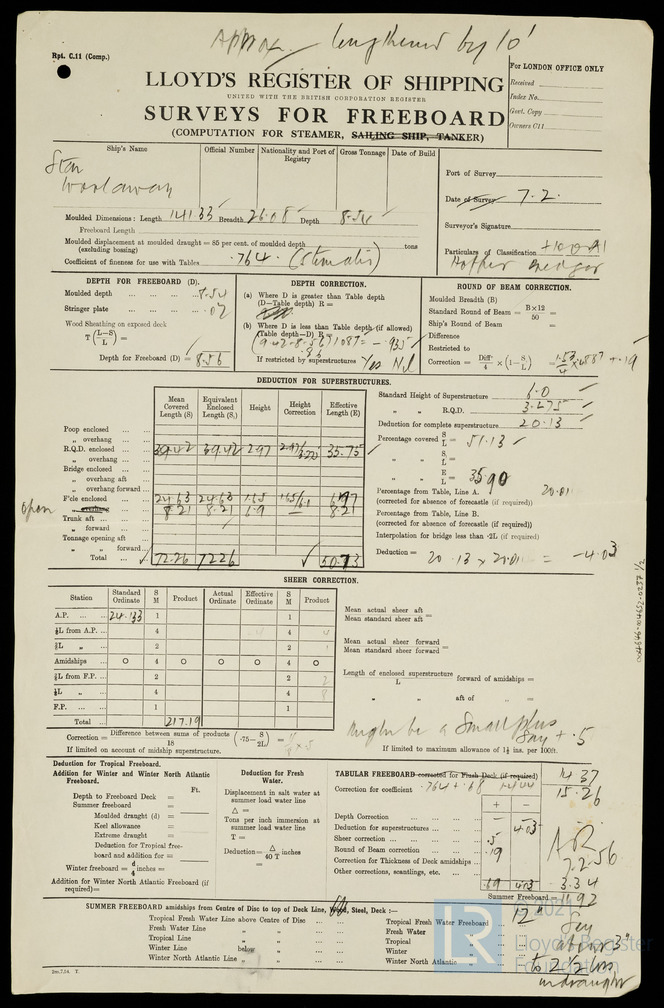 Approx. lengthened by 10'
Rpt. C.11 (Comp.)
For LONDON OFFICE ONLY
Received
Index No.
Govt. Copy
Owners C11
LLOYD'S REGISTER OF SHIPPING
UNITED WITH THE BRITISH CORPORATION REGISTER
SURVEYS FOR FREEBOARD
(COMPUTATION FOR STEAMER, SAILING SHIP, TANKER)
Ship's Name
Official Number
Nationality and Port of Registry
Gross Tonnage
Date of Build
Star
Port of Survey
Date of Survey 7.2.
Surveyor's Signature
Particulars of Classification +100A1
Hopper Dredger
Moulded Dimensions: Length 141.33 Breadth 26.08 Depth 8.54
Freeboard Length
Moulded displacement at moulded draught = 85 per cent. of moulded depth tons
(excluding bossing)
Coefficient of fineness for use with Tables .764.
DEPTH FOR FREEBOARD (D).
Moulded depth 8.54
Stringer plate .02
Wood Sheathing on exposed deck
T(L-S/L) =
Depth for Freeboard (D) = 8.56
DEPTH CORRECTION.
(a) Where D is greater than Table depth
(D—Table depth) R =
(b) Where D is less than Table depth (if allowed)
(Table depth—D) R =
If restricted by superstructures Yes Nil
ROUND OF BEAM CORRECTION.
Moulded Breadth (B)
Standard Round of Beam = B×12/50 =
Ship's Round of Beam =
Difference
Restricted to
Correction = Diff./4 × (1-S/L) = 1.53/4 × .4887 + .19
DEDUCTION FOR SUPERSTRUCTURES.
Mean Covered Length (S)
Equivalent Enclosed Length (S₁)
Height
Height Correction
Effective Length (E)
Poop enclosed
„ overhang
R.Q.D. enclosed 39.42 39.42 2.97 35.75
„ overhang
Bridge enclosed
„ overhang aft
„ overhang forward
F'cle enclosed 24.63 24.63 1.65 1.65/6.1 6.97
open 8.21 8.21 6.9 — 8.21
Trunk aft
„ forward
Tonnage opening aft
„ „ forward
Total 72.26 72.26
Standard Height of Superstructure 6.0
„ „ R.Q.D. 3.275
Deduction for complete superstructure 20.13
Percentage covered S/L = 51.13
„ S₁/L =
„ E/L = 35.90
Percentage from Table, Line A. 20.01
(corrected for absence of forecastle (if required))
Percentage from Table, Line B.
(corrected for absence of forecastle (if required))
Interpolation for bridge less than ·2L (if required)
Deduction = 20.13 × 20.01 = -4.03
SHEER CORRECTION.
Station
Standard Ordinate
S M
Product
Actual Ordinate
Effective Ordinate
S M
Product
A.P. 24.133 1 1
⅙L from A.P. 4 4
⅓L „ 2 2
Amidships 0 4 0 0 0 4 0
⅓L from F.P. 2 2
⅙L „ 4 4
F.P. 1 1
Total 217.19
Mean actual sheer aft =
Mean standard sheer aft
Mean actual sheer forward =
Mean standard sheer forward
Length of enclosed superstructure/L forward of amidships =
„ „ aft of „ =
Correction = Difference between sums of products/18 (·75-S/2L) =
If limited on account of midship superstructure.
Might be a small plus
Say + .5
If limited to maximum allowance of 1½ ins. per 100ft.
Deduction for Tropical Freeboard.
Addition for Winter and Winter North Atlantic Freeboard.
Ft.
Depth to Freeboard Deck =
Summer freeboard =
Moulded draught (d) =
Keel allowance =
Extreme draught =
Deduction for Tropical freeboard and addition for =
Winter freeboard = d/4 inches =
Addition for Winter North Atlantic Freeboard (if required)=
Deduction for Fresh Water.
Displacement in salt water at summer load water line
Δ =
Tons per inch immersion at summer load water line
T =
Deduction = Δ/40 T inches
=
TABULAR FREEBOARD corrected for Flush Deck (if required) 14.37
Correction for coefficient .764 + .68 / 1.444 15.26
+ −
Depth Correction — —
Deduction for superstructures 4.03
Sheer correction .5
Round of Beam correction .19
Correction for Thickness of Deck amidships
Other corrections, scantlings, etc.
.69 4.03 3.34
Summer Freeboard = 11.92
7.2.56
SUMMER FREEBOARD amidships from Centre of Disc to top of Deck Line, Wood, Steel, Deck :—
12"
Tropical Fresh Water Line above Centre of Disc
Fresh Water Line „ „
Tropical Line „ „
Winter Line below „
Winter North Atlantic Line „ „
Tropical Fresh Water Freeboard
Fresh Water „
Tropical „
Winter „
Winter North Atlantic „
Say
about 3"
to 2½ less
in draught
2m.7.54 T.
© 2021
LR
Lloyd's Register
Foundation
004646-004652-0237 1/2